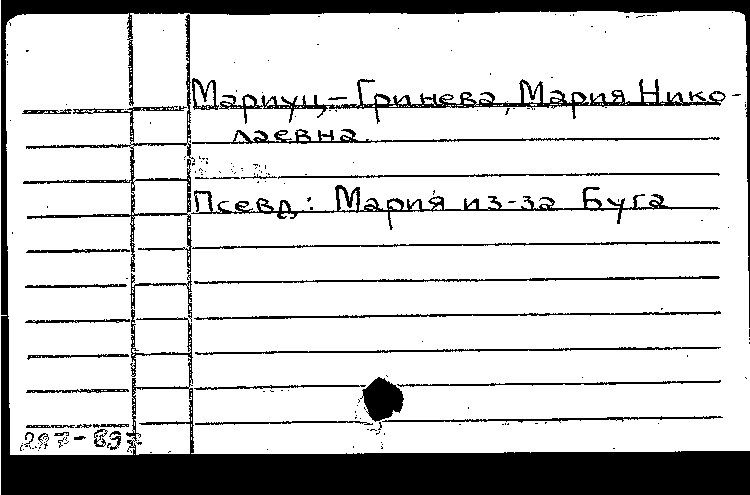 Мариуц-Гринева, Мария Нико-
лаевна.
Псевд: Мария из-за Буга
297-897